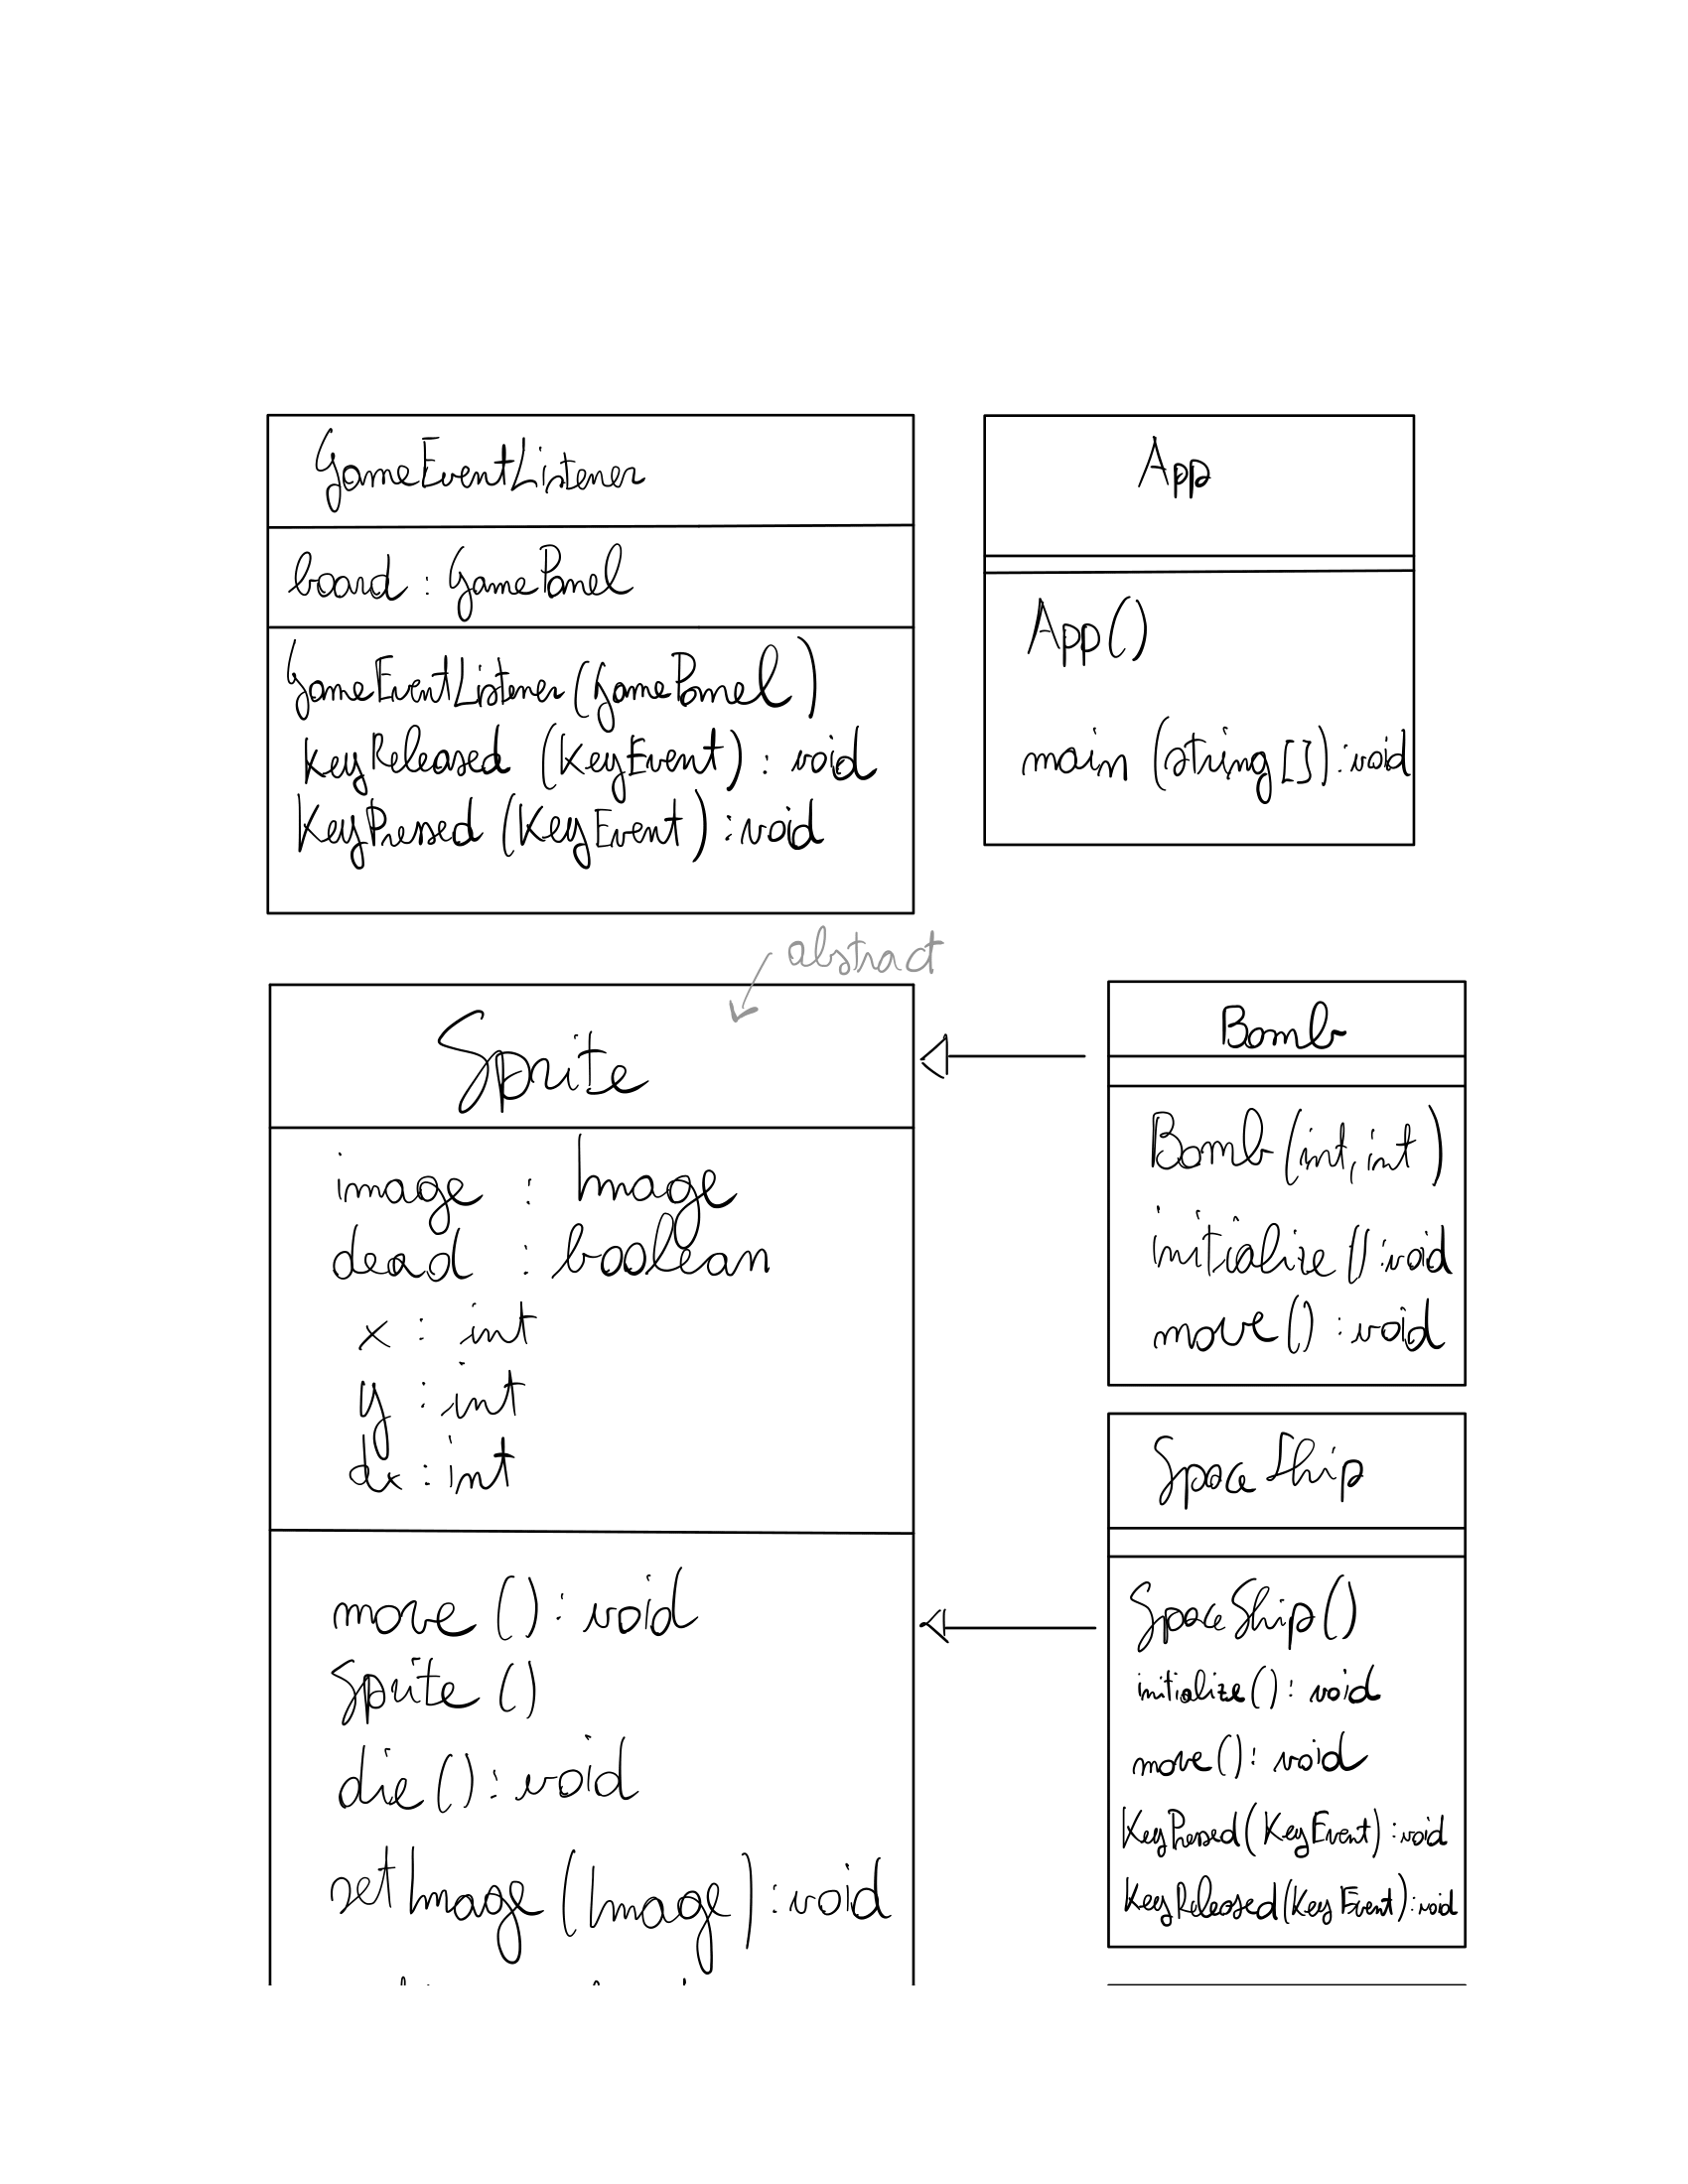 GameEventListener
board : GamePanel
GameEventListener (GamePanel)
KeyReleased (KeyEvent) : void
KeyPressed (KeyEvent) : void
App
App()
main (string []) : void
abstract
Sprite
image : Image
dead : boolean
x : int
y : int
dx : int
move () : void
Sprite ()
die () : void
setImage (Image) : void
Bomb
Bomb (int, int)
initialize () : void
move () : void
SpaceShip
SpaceShip ()
initialize () : void
move () : void
KeyPressed (KeyEvent) : void
KeyReleased (KeyEvent) : void